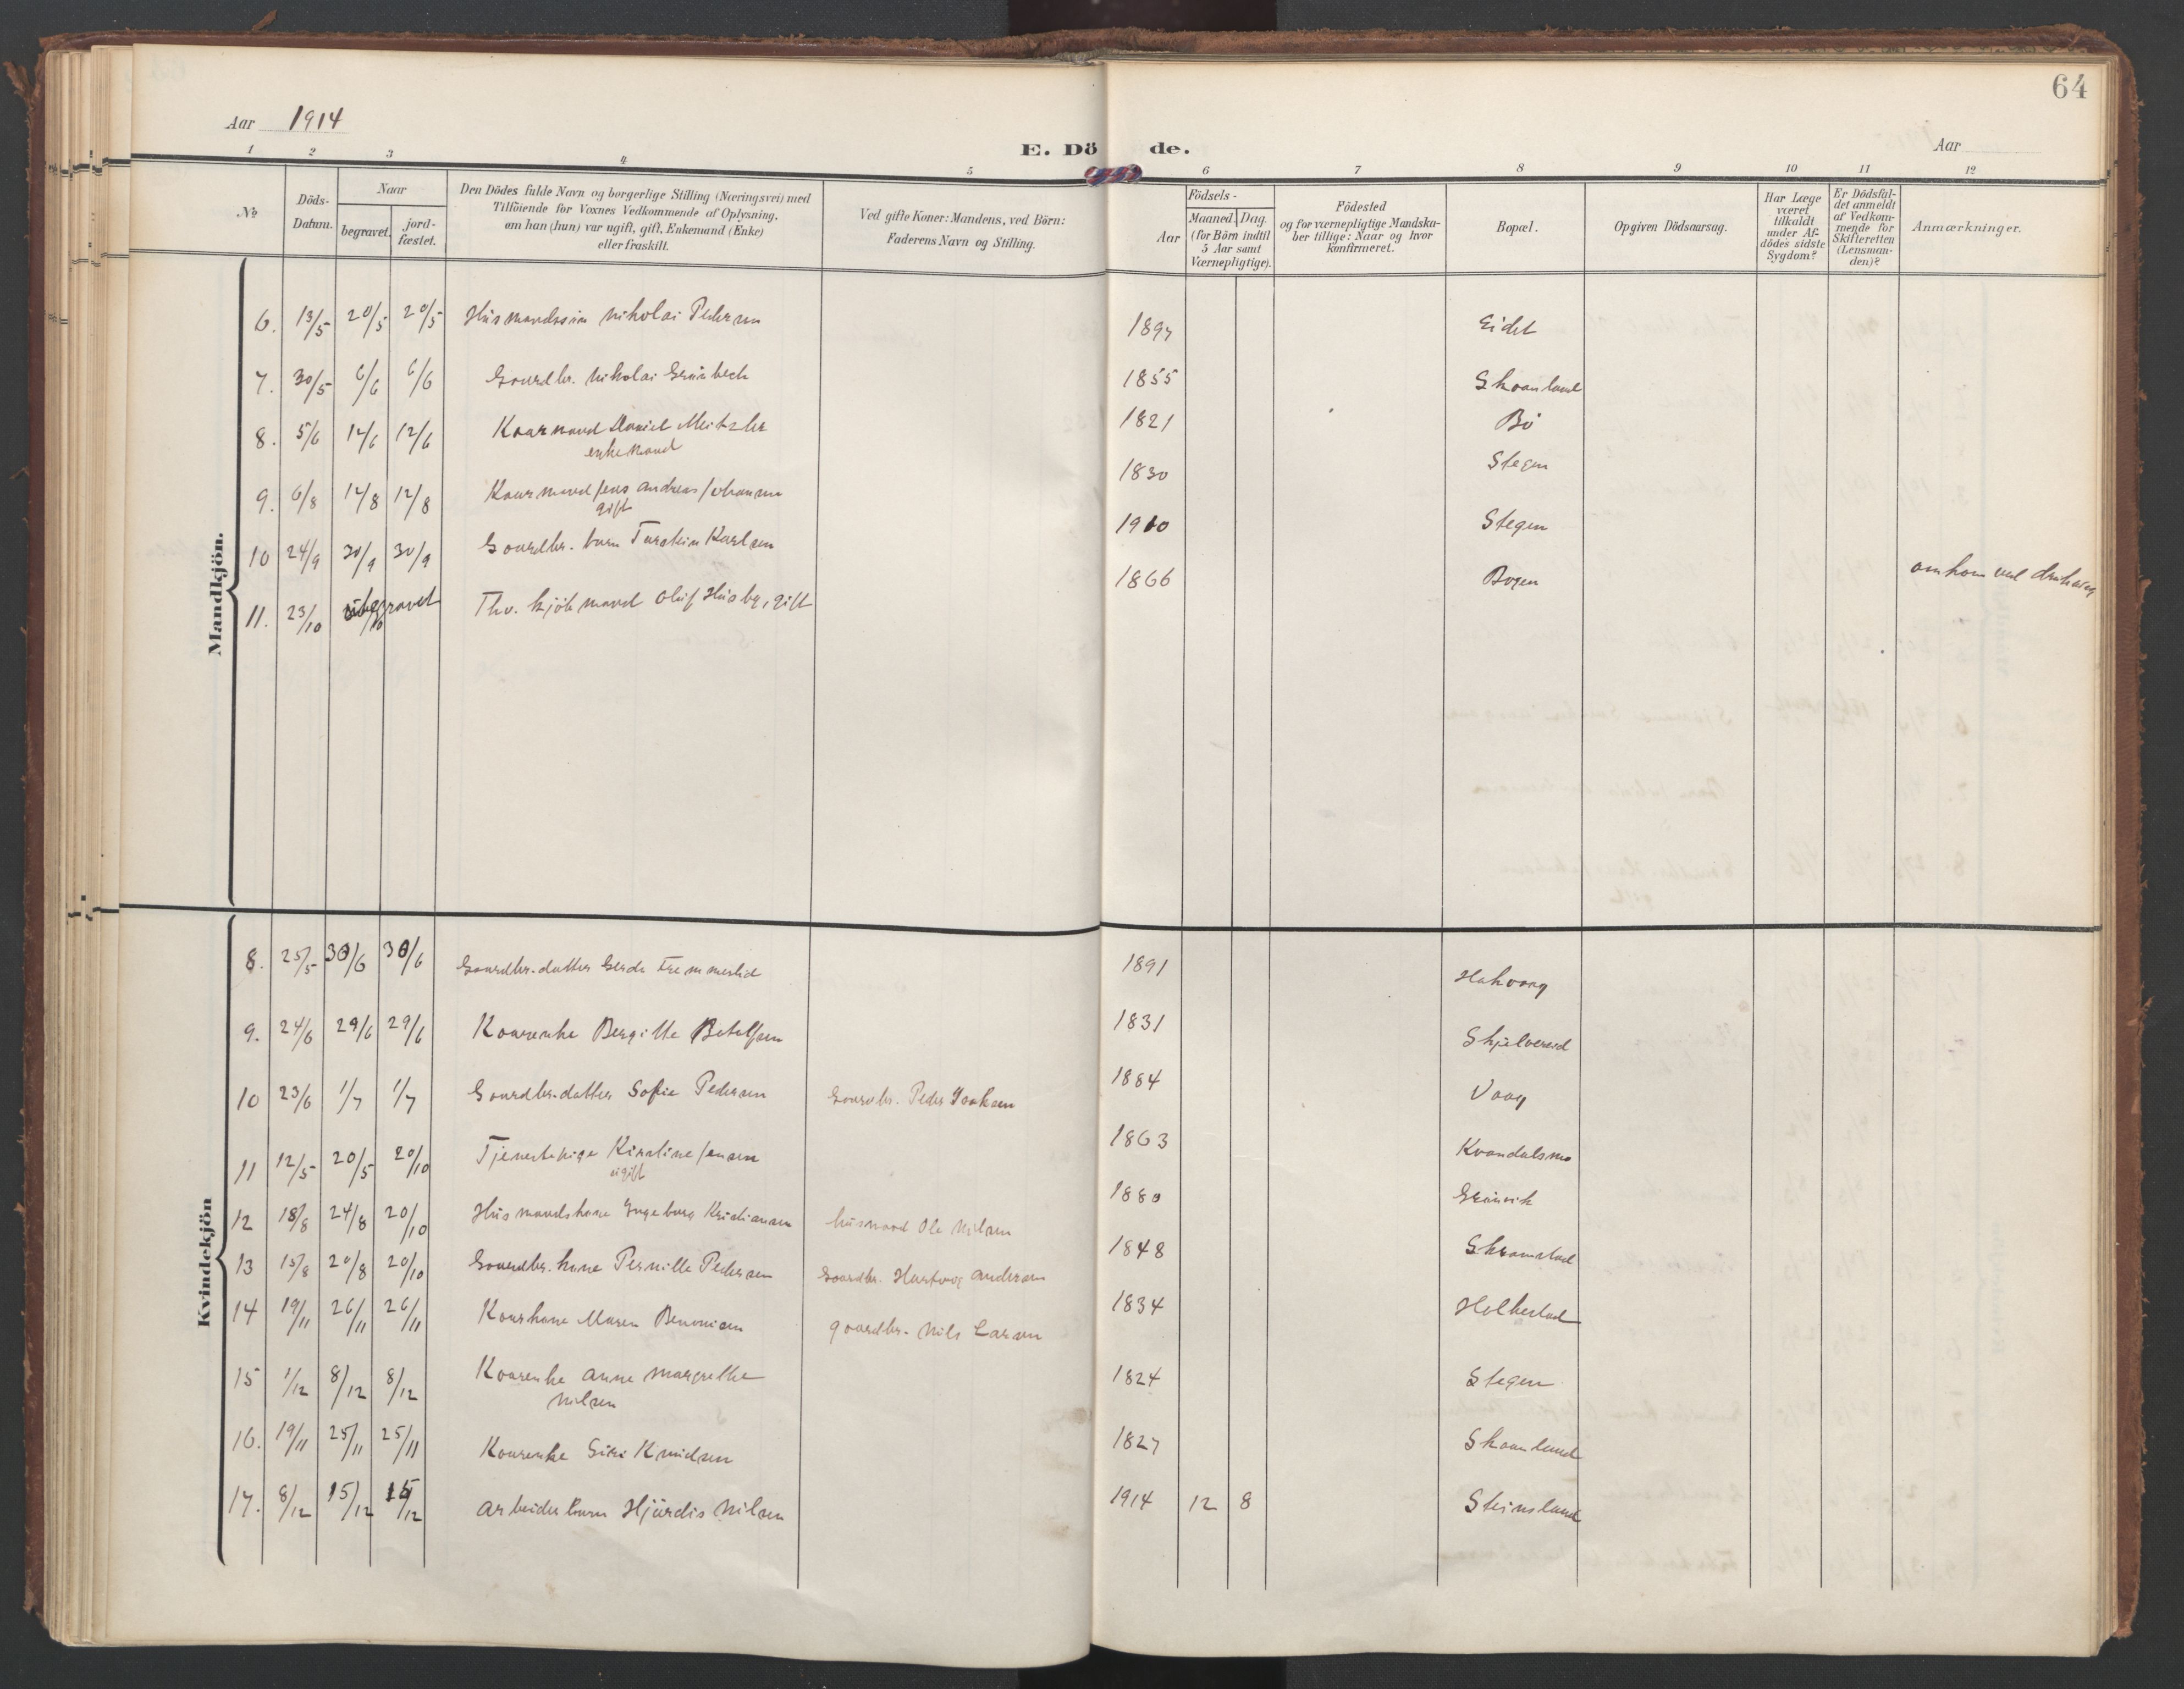 64
Aar 1914
E. Dö de.
Aar
1 2 3 4 5 6 7 8 9 10 11 12
№
Döds-Datum.
Naar
begravet.
jord-fæstet.
Den Dödes fulde Navn og borgerlige Stilling (Næringsvei) med
Tilföiende for Voxnes Vedkommende af Oplysning,
om han (hun) var ugift, gift, Enkemand (Enke)
eller fraskilt.
Ved gifte Koner: Mandens, ved Börn:
Faderens Navn og Stilling.
Födsels-
Aar
Maaned.
Dag.
(for Börn indtil
5 Aar samt
Værnepligtige).
Födested
og for værnepligtige Mandska-
ber tillige: Naar og hvor
konfirmeret.
Bopæl.
Opgiven Dödsaarsag.
Har Læge
været
tilkaldt
under Af-
dödes sidste
Sygdom?
Er Dödsfal-
det anmeldt
af Vedkom-
mende for
Skifteretten
(Lensman-
den)?
Anmærkninger.
Mandkjön.
6. 13/5 20/5 20/5 Husmandssön Nikolai Pedersen 1897 Eidet
7. 30/5 6/6 6/6 Gaardbr. Nikolai Grönbech 1855 Skaanland
8. 5/6 12/6 12/6 Kaarmand Daniel 1821 Bö
enkemand
9. 6/8 12/8 12/8 Kaarmand Jens Andreas Johannes 1830 Stegen
gift
10 24/9 30/9 30/9 Gaardbr. barn Torstein Karlsen 1910 Stegen
11. 23/10 Thv. kjöbmand Oluf Husby, gift 1866 Bogen omkom ved
Kvindekjön
8. 25/5 30/6 30/6 Gaardbr. datter Gerda 1891 Hakvaag
9. 24/6 29/6 29/6 Kaarenke Bergitte Betelsen 1831 Skjelvereid
10 23/6 1/7 1/7 Gaardbr. datter Sofie Pedersen Gaardbr. Peder Isaksen 1884 Vaag
11 12/5 20/5 20/10 Tjenestepige Kirstine Jensen 1863 Kvandalsmo
ugift
12 18/8 24/8 20/10 Husmandskone Ingeborg Kristiansen husmand Ole Nilsen 1880 Grönvik
13 15/8 20/8 20/10 Gaardbr. kone Pernille Pedersen Gaardbr. Hartvig Andersen 1848 Skramstad
14 19/11 26/11 26/11 Kaarkone Maren Benonisen gaardbr. Nils Larsen 1834 Holkestad
15 1/12 8/12 8/12 Kaarenke Anne Margrethe 1824 Stegen
Nilsen
16. 19/11 25/11 25/11 Kaarenke Siri Knudsen 1827 Skaanland
17. 8/12 15/12 15/12 Arbeider barn Hjördis Nilsen 1914 12 8 Steinsland